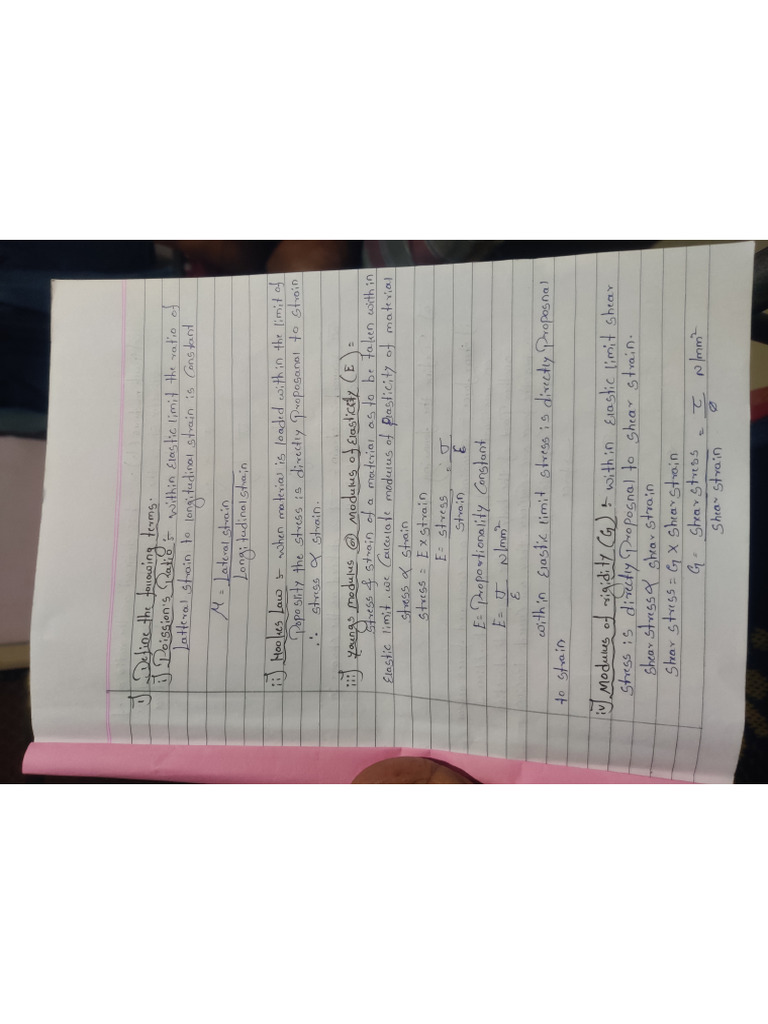 1) Define the following terms.
i) Poission's Ratio :- within Elastic limit the ratio of
Latteral strain to longitudinal strain is Constant
μ = Lateral strain / Longitudinal strain
ii) Hookes Law :- when material is loaded within the limit of
Poposlity the stress is directly proposanal to strain
∴ stress ∝ strain.
iii) Youngs modulus @ modulus of Elasticity (E) =
stress & strain of a material as to be taken within
Elastic limit. we Calculate modulus of Elasticity of material
stress ∝ strain
stress = E × strain
E = stress / strain = σ / ε
E = Proportionality Constant
E = σ / ε N/mm²
within Elastic limit stress is directly proposnal
to strain
iv) Modulus of rigidity (G) :- within Elastic limit shear
stress is directly proposnal to shear strain.
shear stress ∝ shear strain
shear stress = G × shear strain
G = shear stress / shear strain = τ / ø N/mm²